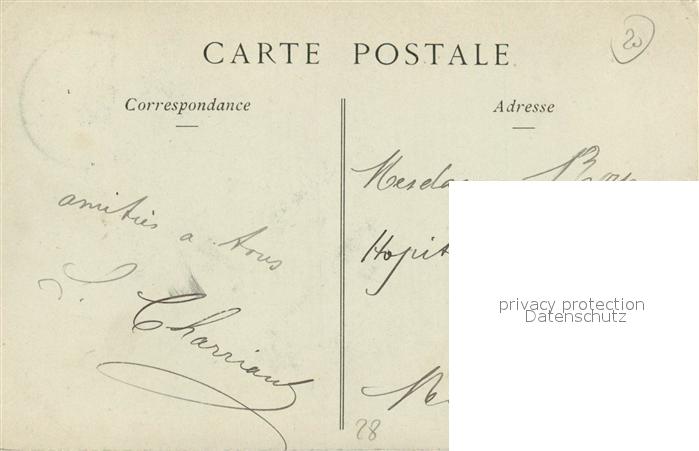 CARTE POSTALE
20
Correspondance
amitiés a tous
Charriaud
Adresse
Hopit
privacy protection
Datenschutz
28